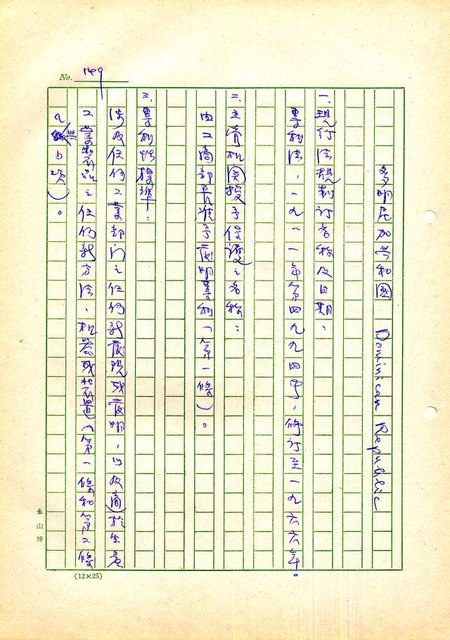 No. 149
多明尼加共和國 Dominican Republic
一、現行法規制訂名稱及日期：
專利法，一九一一年第四九九四号，修訂至一九六六年。
二、主管机関授予保護之名称：
由工商部長准予發明專利（第一條）。
三、專利性標準：
涉及任何工業部门之任何新發現或發明，以及適於生產
工業製品之任何新方法、机器或裝置（第一條和第二條
乙 款）。
金山牌
(12×25)